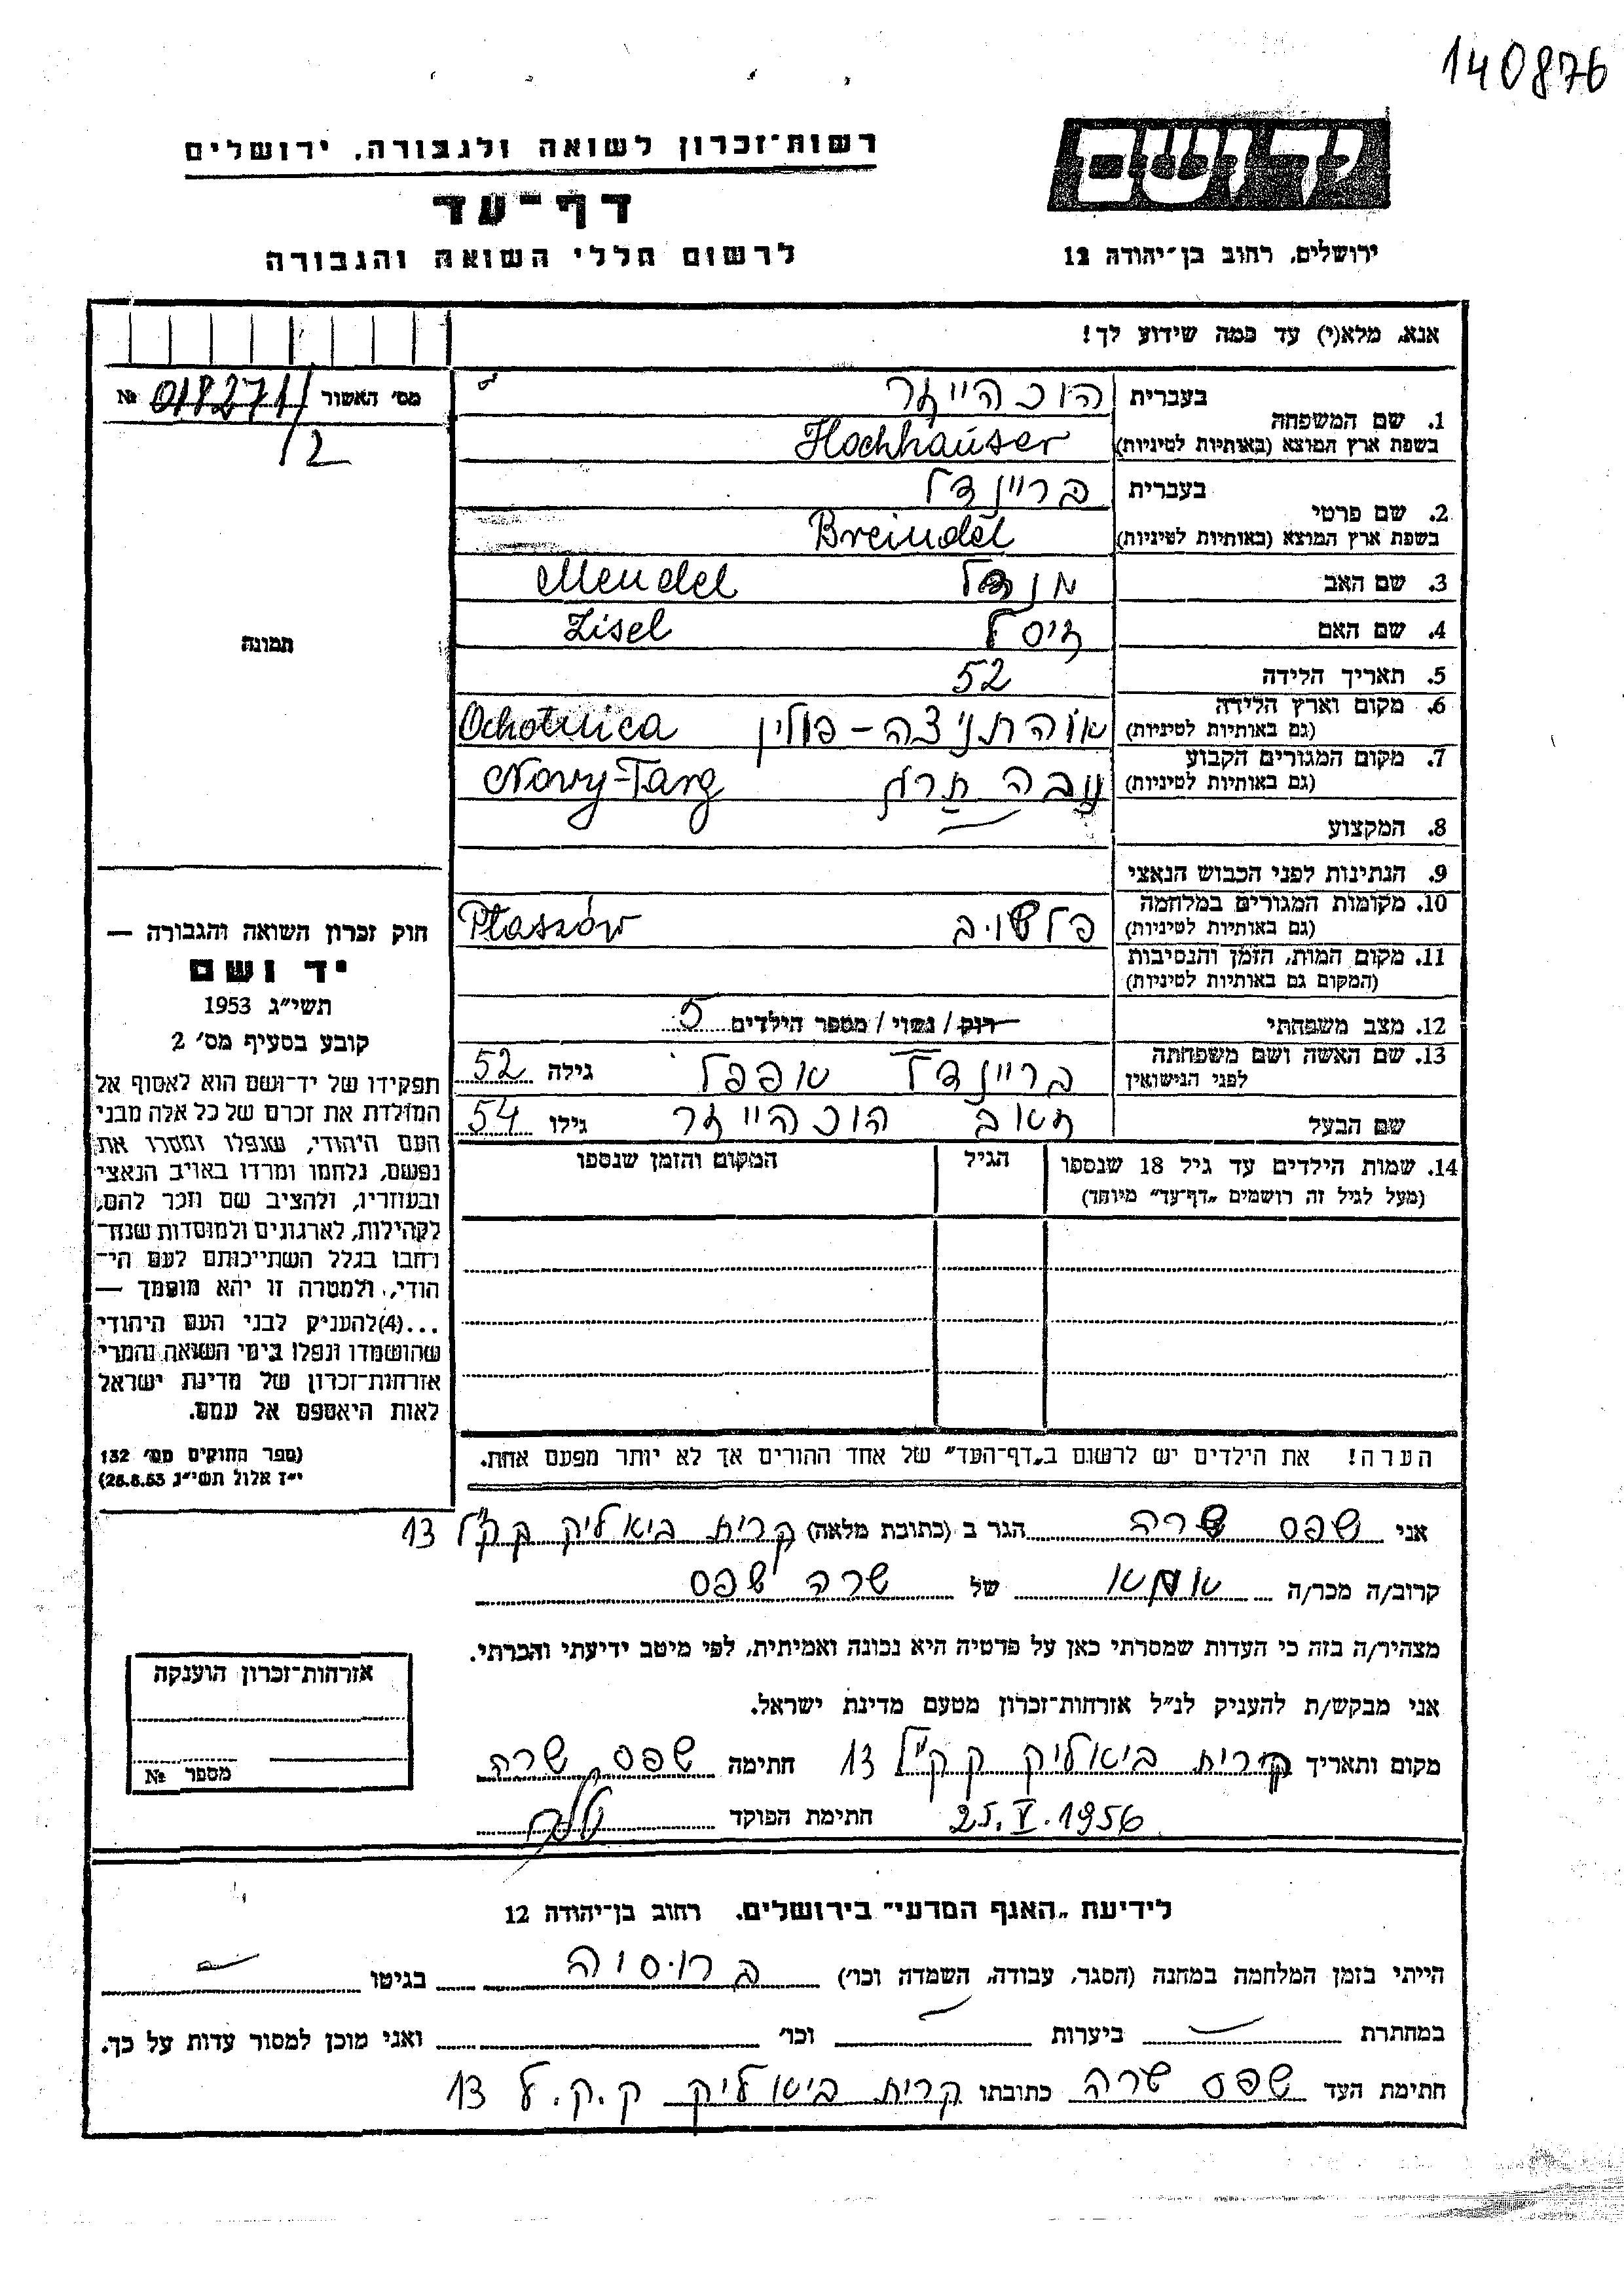 140876
יד ושם
רשות־זכרון לשואה ולגבורה, ירושלים
דף־עד
ירושלים, רחוב בן־יהודה 12
לרשום חללי השואה והגבורה
אנא, מלא(י) עד כמה שידוע לך!
מס׳ האשור № 018271/
/2
תמונה
1. שם המשפחה בעברית הוכהייזר
בשפת ארץ המוצא (באותיות לטיניות) Hochhauser
2. שם פרטי בעברית בריינדל
בשפת ארץ המוצא (באותיות לטיניות) Breindel
3. שם האב מנדל Mendel
4. שם האם זיסל Zisel
5. תאריך הלידה 52
6. מקום וארץ הלידה (גם באותיות לטיניות) אוהתניצה – פולין Ochotnica
7. מקום המגורים הקבוע (גם באותיות לטיניות) נובה תרג Novy-Targ
8. המקצוע
9. הנתינות לפני הכבוש הנאצי
10. מקומות המגורים במלחמה (גם באותיות לטיניות) פלשוב Płaszów
11. מקום המות, הזמן והנסיבות (המקום גם באותיות לטיניות)
12. מצב משפחתי רוק / נשוי / מספר הילדים 5
13. שם האשה ושם משפחתה לפני הנישואין בריינדל אפפל גילה 52
שם הבעל הוכהייזר גילו 54
14. שמות הילדים עד גיל 18 שנספו הגיל המקום והזמן שנספו
(מעל לגיל זה רושמים „דף־עד״ מיוחד)
הערה! את הילדים יש לרשום ב„דף־העד״ של אחד ההורים אך לא יותר מפעם אחת.
חוק זכרון השואה והגבורה —
יד ושם
תשי״ג 1953
קובע בסעיף מס׳ 2
תפקידו של יד־ושם הוא לאסוף אל
המולדת את זכרם של כל אלה מבני
העם היהודי, שנפלו ומסרו את
נפשם, נלחמו ומרדו באויב הנאצי
ובעוזריו, ולהציב שם וזכר להם,
לקהילות, לארגונים ולמוסדות שנח־
רבו בגלל השתייכותם לעם הי־
הודי, ולמטרה זו יהא מוסמך —
...(4)להעניק לבני העם היהודי
שהושמדו ונפלו בימי השואה והמרי
אזרחות־זכרון של מדינת ישראל
לאות היאספם אל עמם.
(ספר החוקים מס׳ 132
י״ז אלול תשי״ג 28.8.53)
אני שפס שרה הגר ב (כתובת מלאה) קרית ביאליק קק״ל 13
קרוב/ה מכר/ה אמא של שרה שפס
מצהיר/ה בזה כי העדות שמסרתי כאן על פרטיה היא נכונה ואמיתית, לפי מיטב ידיעתי והכרתי.
אני מבקש/ת להעניק לנ״ל אזרחות־זכרון מטעם מדינת ישראל.
מקום ותאריך קרית ביאליק קק״ל 13 חתימה שפס שרה
25.V.1956 חתימת הפוקד
אזרחות־זכרון הוענקה
מספר №
לידיעת „האגף המדעי״ בירושלים, רחוב בן־יהודה 12
הייתי בזמן המלחמה במחנה (הסגר, עבודה, השמדה וכו׳) ברוסיה בגיטו —
במחתרת — ביערות — וכו׳ ואני מוכן למסור עדות על כך.
חתימת העד שפס שרה כתובתו קרית ביאליק ק.ק.ל 13